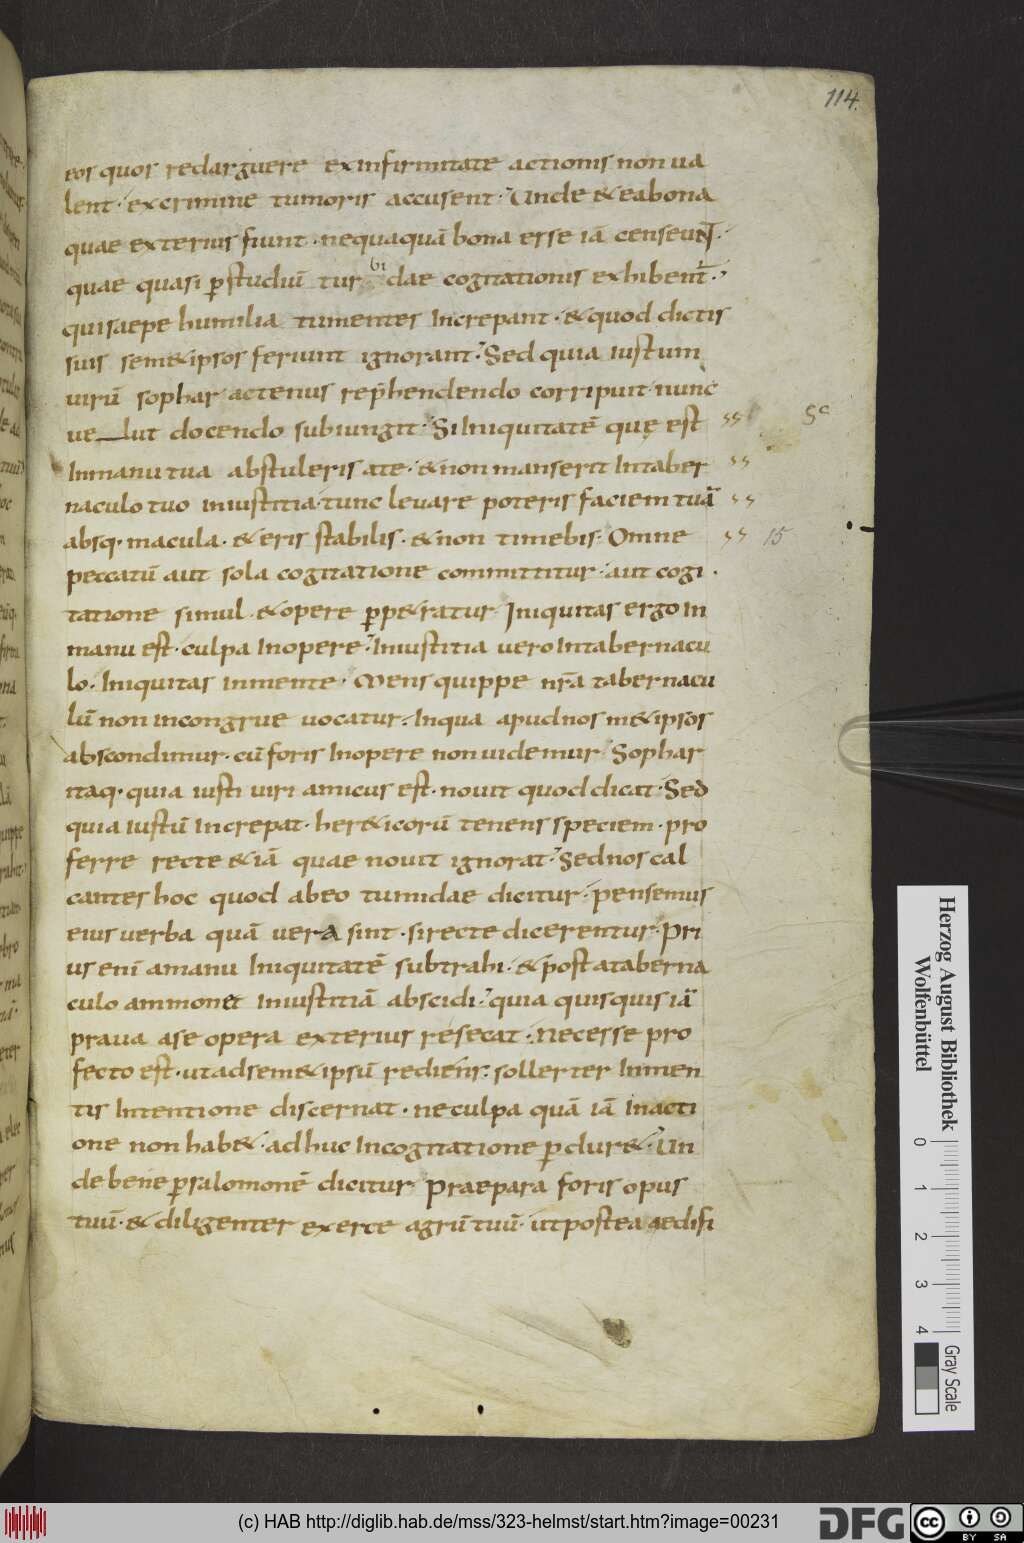 114.
eos quos redarguere ex infirmitate actionis non ua
lent · ex crimine tumoris accusent · Unde & ea bona
quae exterius fiunt · nequaquā bona esse iā censeunt ·
quae quasi p̱ studiū turbidae cogitationis exhibent ·
qui saepe humilia tumentes increpant · & quod dictis
suis sem&ipsos feriunt ignorant · Sed quia iustum
uirū sophar actenus rep̄hendendo corripuit · nunc
uelut docendo subiungit · Si iniquitatē quę est
In manu tua abstuleris a te · & non manserit In taber
naculo tuo iniustitia · tunc leuare poteris faciem tuā
absq· macula · & eris stabilis · & non timebis · Omne
peccatū aut sola cogitatione committitur · aut cogi
tatione simul & opere p̱p&ratur Iniquitas ergo in
manu est · culpa In opere · Iniustitia uero In tabernacu
lo · Iniquitas in mente · Mens quippe nr̄a tabernacu
lū non incongrue uocatur · In qua apud nos m&ipsos
abscondimur · cū foris In opere non uidemur Sophar
itaq· quia iusti uiri amicus est · nouit quod dicat · Sed
quia iustū Increpat · her&icorū tenens speciem · pro
ferre recte & iā quae nouit ignorat · Sed nos cal
cantes hoc quod ab eo tumidae dicitur · pensemus
eius uerba quā uera sint · si recte dicerentur · Pri
us enī a manu Iniquitatē subtrahi · & post a taberna
culo ammonet iniustitiā abscidi · quia quisquis iā
praua a se opera exterius resecat · Necesse pro
fecto est · ut ad sem&ipsū rediens · sollerter In men
tis Intentione discernat · ne culpa quā iā in acti
one non hab& · adhuc In cogitatione p̱dur& · Un
de bene p̱ salomonē dicitur Praepara foris opus
tuū · & diligenter exerce agrū tuū · ut postea aedifi
5c
15
Herzog August Bibliothek
Wolfenbüttel
0 1 2 3 4
Gray Scale
(c) HAB http://diglib.hab.de/mss/323-helmst/start.htm?image=00231
DFG
cc BY SA